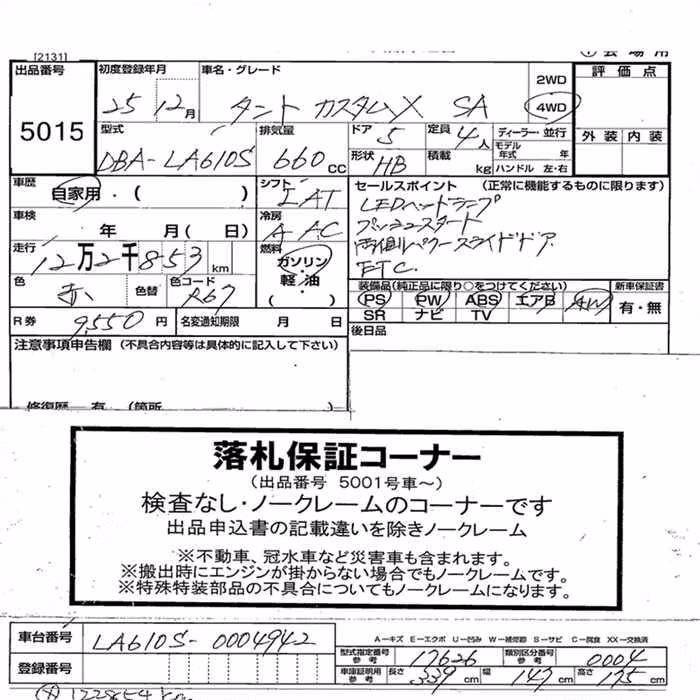 [2131]
出品番号 初度登録年月 車名・グレード 評価点
5015 25 12月 タント カスタムX SA 2WD 4WD
型式 排気量 ドア 5 定員 4人 ディーラー・並行 外装 内装
DBA-LA610S 660cc 形状 HB 積載 kg モデル年式 年 ハンドル 左・右
車歴 自家用・( ) シフト IAT セールスポイント (正常に機能するものに限ります)
車検 年 月( 日) 冷房 AAC LEDヘッドランプ
プッシュスタート
走行 12万2千853km 燃料 ガソリン・軽油 両側パワースライドドア
ETC.
色 赤 色替 色コード R67 装備品(純正品に限り○をつけてください) 新車保証書
PS PW ABS エアB AW 有・無
R券 9,550円 名変通知期限 月 日 SR ナビ TV
注意事項申告欄 (不具合内容等は具体的に記入して下さい) 後日品
修復歴 有 (箇所
落札保証コーナー
(出品番号 5001号車～)
検査なし・ノークレームのコーナーです
出品申込書の記載違いを除きノークレーム
※不動車、冠水車など災害車も含まれます。
※搬出時にエンジンが掛からない場合でもノークレームです。
※特殊特装部品の不具合についてもノークレームになります。
車台番号 LA610S-0004942 A-キズ E-エクボ U-凹み W-補修跡 S-サビ C-腐食 XX-交換済
型式指定番号 参考 17626 類別区分番号 参考 0004
登録番号 車庫証明用 参考 長さ 339cm 幅 147cm 高さ 175cm